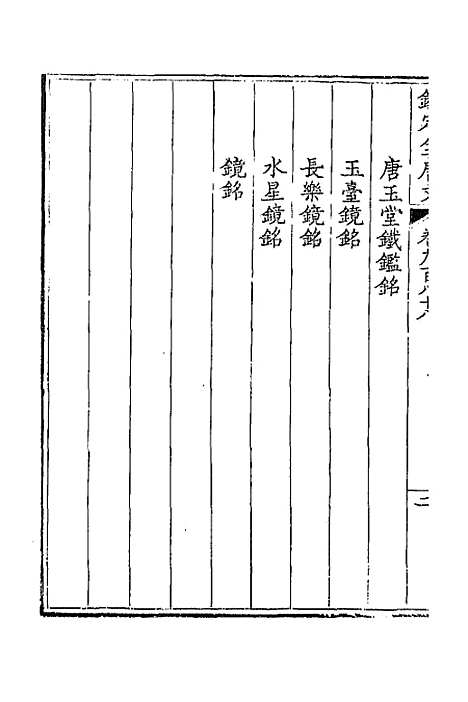 欽定全唐文 卷九百八十八
唐玉堂鐵鑑銘
玉臺鏡銘
長樂鏡銘
水星鏡銘
鏡銘
二